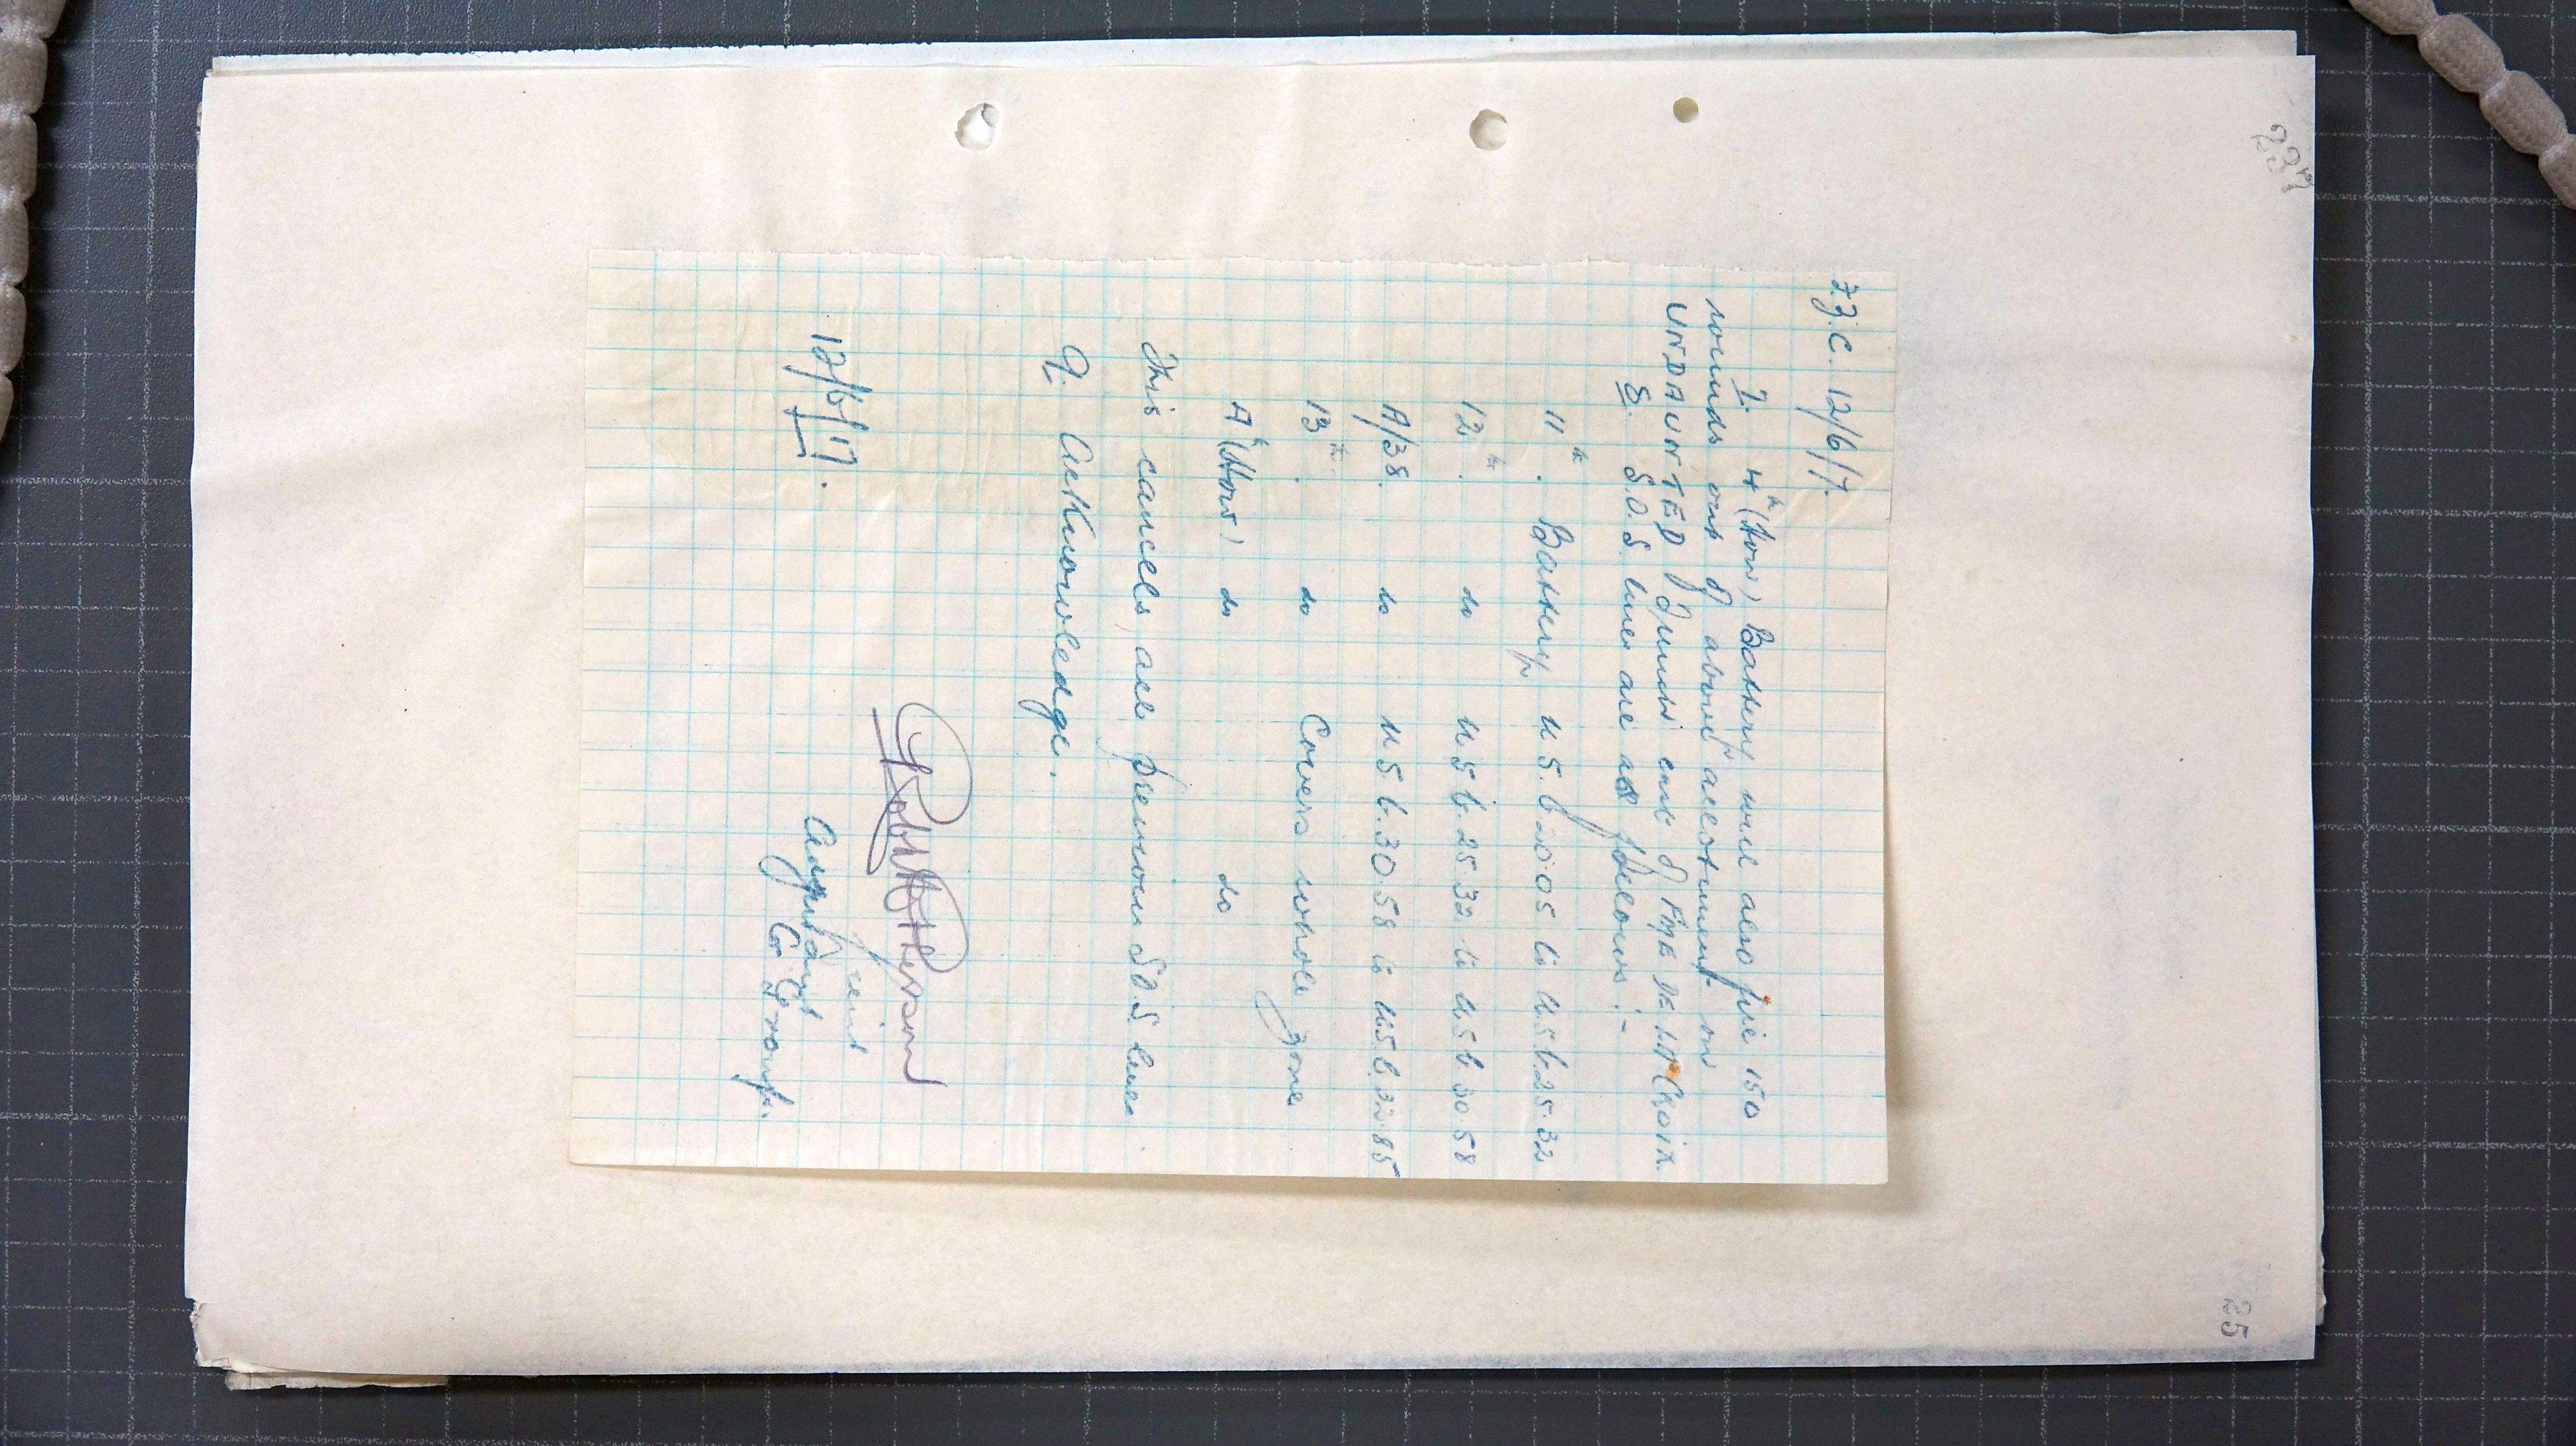 237
25
F.Z.C. 12/6/17.
7. 4th (How) Battery will also fire 150
rounds out of above allotment on
UNDAUNTED / Junct end of FME DE LA CROIX.
8. S.O.S lines are as follows :-
11th. Battery U 5.b.20.05 to U.5.b.25.32
12th. do U.5.b.25.32 to U.5.b.30.58
A/38. do U.5.b.30.58 to U.5.b.32.85
13th. do Covers whole zone
4th (How) do do
This cancels all previous S.O.S lines.
9. Acknowledge.
12/6/17.
Lieut
Adjutant
Group.